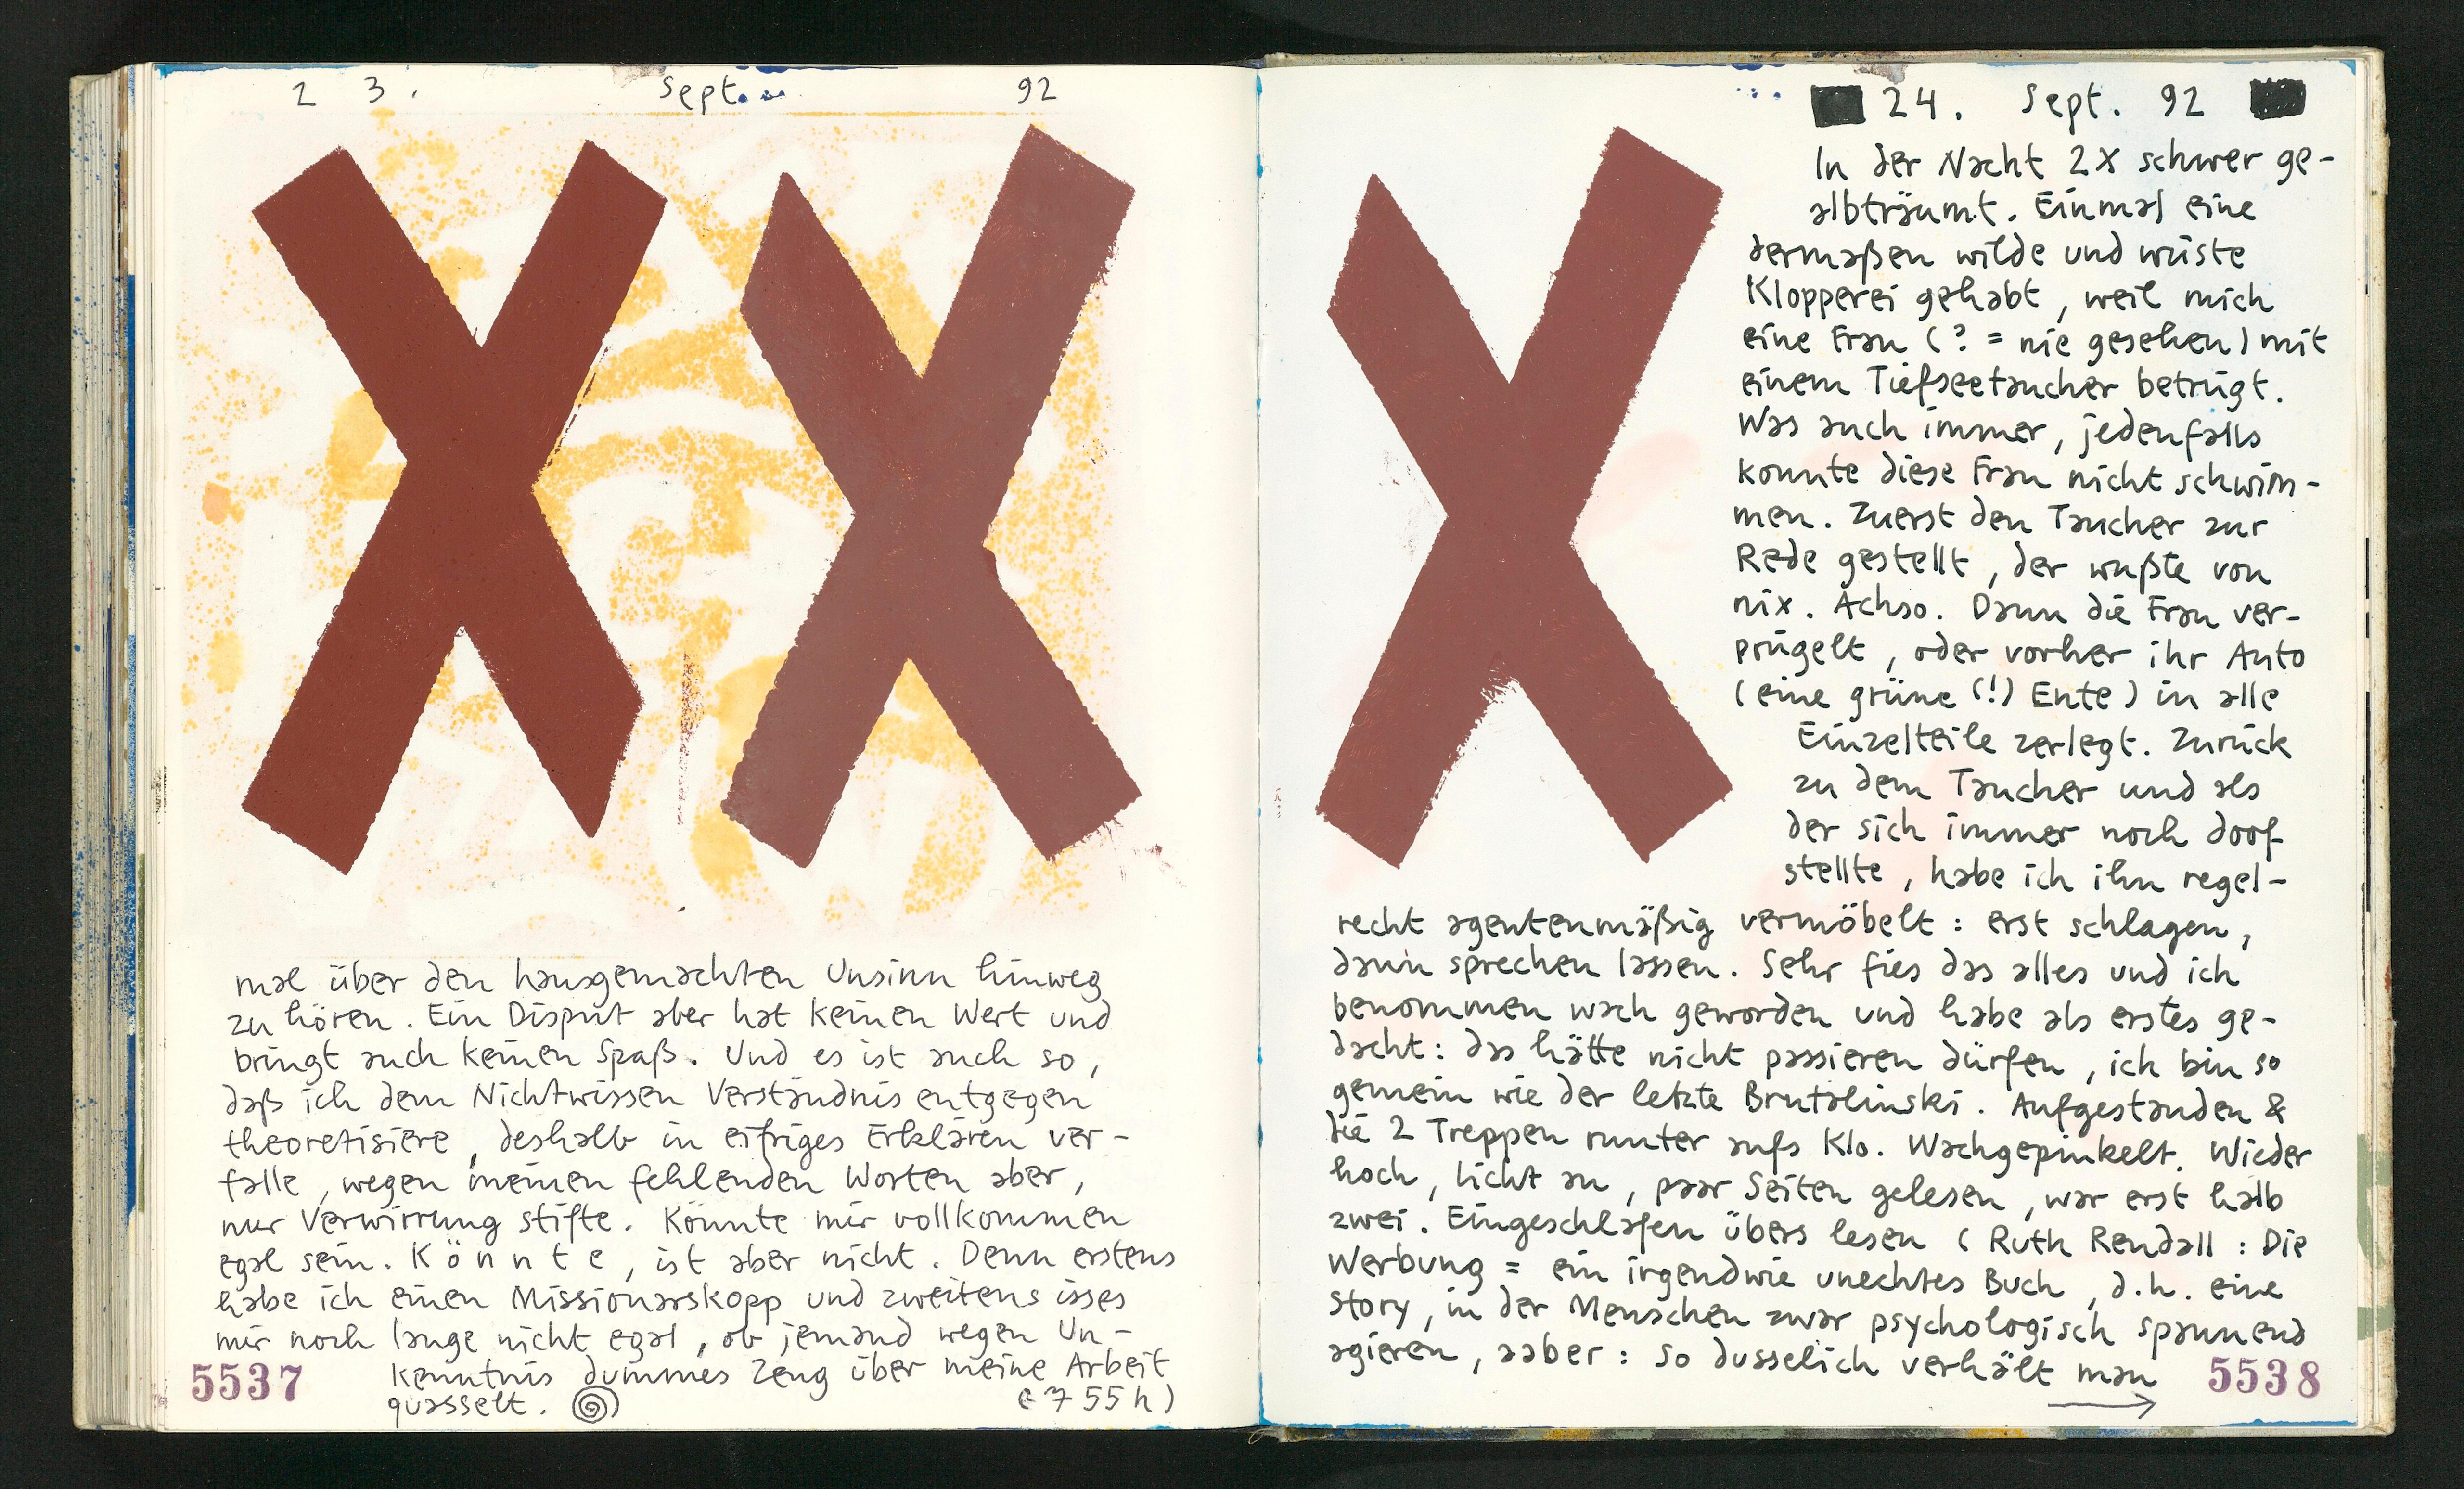 2 3. Sept... 92
mal über den hausgemachten Unsinn hinweg
zu hören. Ein Disput aber hat keinen Wert und
bringt auch keinen Spaß. Und es ist auch so,
daß ich dem Nichtwissen Verständnis entgegen
theoretisiere, deshalb in eifriges Erklären ver-
falle, wegen meinen fehlenden Worten aber,
nur Verwirrung stifte. Könnte mir vollkommen
egal sein. K ö n n t e, ist aber nicht. Denn erstens
habe ich einen Missionarskopp und zweitens isses
mir noch lange nicht egal, ob jemand wegen Un-
kenntnis dummes Zeug über meine Arbeit
quasselt. (755h)
5537
24. Sept. 92
In der Nacht 2x schwer ge-
albträumt. Einmal eine
dermaßen wilde und wüste
Klopperei gehabt, weil mich
eine Frau (? = nie gesehen) mit
einem Tiefseetaucher betrügt.
Was auch immer, jedenfalls
konnte diese Frau nicht schwim-
men. Zuerst den Taucher zur
Rede gestellt, der wußte von
nix. Achso. Dann die Frau ver-
prügelt, oder vorher ihr Auto
(eine grüne (!) Ente) in alle
Einzelteile zerlegt. Zurück
zu dem Taucher und als
der sich immer noch doof
stellte, habe ich ihn regel-
recht agentenmäßig vermöbelt: erst schlagen,
dann sprechen lassen. Sehr fies das alles und ich
benommen wach geworden und habe als erstes ge-
dacht: das hätte nicht passieren dürfen, ich bin so
gemein wie der letzte Brutalinski. Aufgestanden &
die 2 Treppen runter aufs Klo. Wachgepinkelt. Wieder
hoch, Licht an, paar Seiten gelesen, war erst halb
zwei. Eingeschlafen übers lesen (Ruth Rendall: Die
Werbung = ein irgendwie unechtes Buch, d.h. eine
story, in der Menschen zwar psychologisch spannend
agieren, aaber: so dusselich verhält man
5538